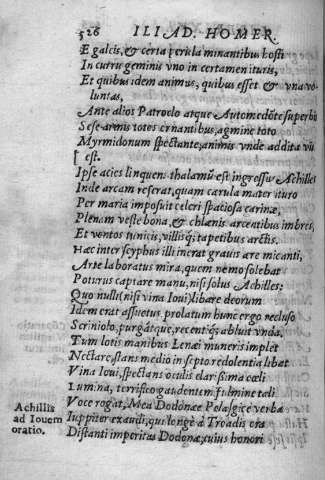 526 ILIAD. HOMER.
E galeis, & certa pericla minantibus hosti
In curru geminis vno in certamen ituris,
Et quibus idem animus, quibus esset & vna voluntas,
Ante alios Patroclo atque Automedõte superbis
Sese armis totos ornantibus, agmine toto
Myrmidonum spectante, animis vnde addita vis est.
Ipse acies linquens thalamũ est ingressus Achilles
Inde arcam reserat, quam carula mater ituro
Per maria imposuit celeri spatiosa carinæ,
Plenam veste bona, & chlænis arcentibus imbres,
Et ventos tunicis, villisq; tapetibus arctis.
Hac inter scyphus illi incrat grauis ære micanti,
Arte laboratus mira, quem nemo solebat
Poturus captare manu, nisi solus Achilles:
Quo nulli (nisi vina Ioui) libare deorum
Idem erat assuetus, prolatum hunc ergo recluso
Scriniolo, purgátque, recentiq; abluit vnda.
Tum lotis manibus Lenæi muneris implet
Nectare, stans medio in septo redolentia libat
Vina Ioui, spectans oculis clarissima cœli
Lumina, terrifico gaudentem fulmine tali
Voce rogat, Mea Dodonæe Pelasgice verba
Iuppiter exaudi, qui longè à Troadis ora
Distanti imperitas Dodonæ, cuius honori
Achillis
ad Iouem
oratio.